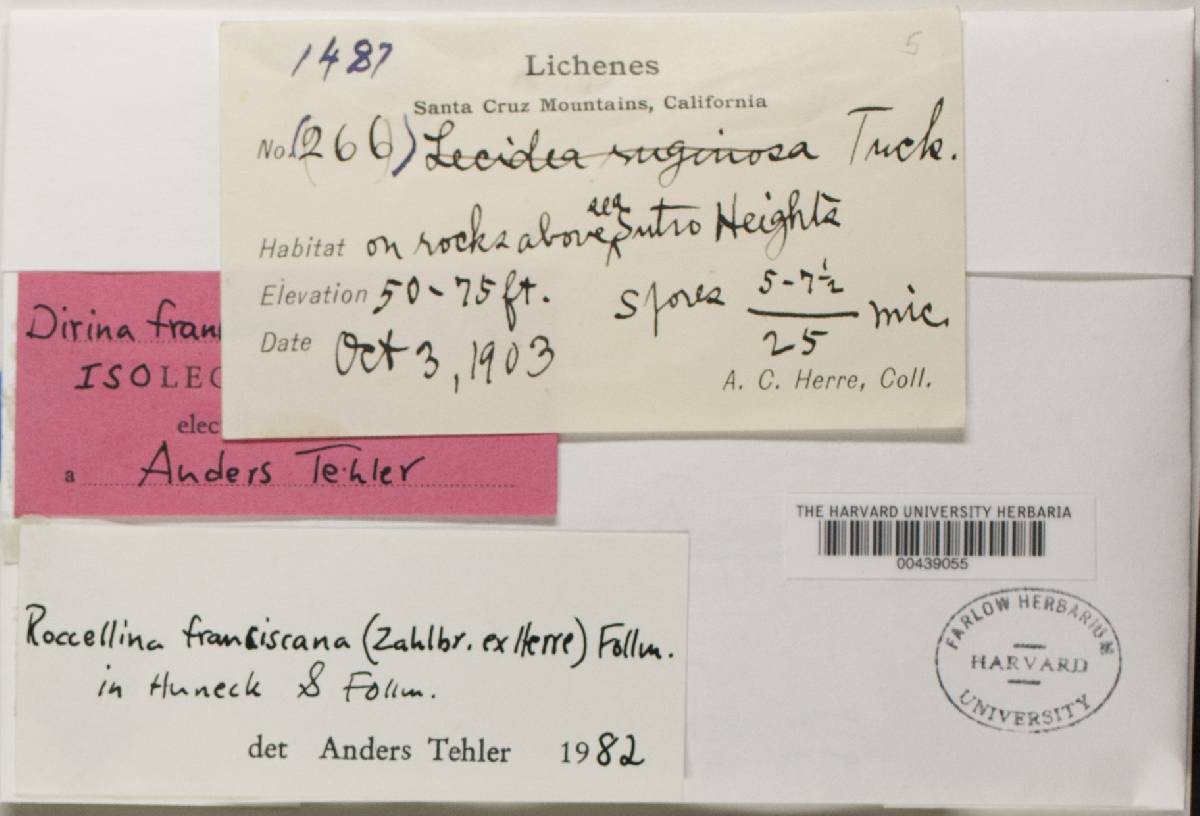 1487
5
Lichenes
Santa Cruz Mountains, California
No. (266) Lecidea ruginosa Tuck.
sea
Habitat on rocks above Sutro Heights
Elevation 50-75 ft. Spores 5-7½
25 mic.
Date Oct 3, 1903
A. C. Herre, Coll.
Dirina fran
ISOLEC
elec
a Anders Tehler
THE HARVARD UNIVERSITY HERBARIA
00439055
FARLOW HERBARIUM
HARVARD
UNIVERSITY
Roccellina franciscana (Zahlbr. ex Herre) Follm.
in Huneck & Follm.
det Anders Tehler 1982